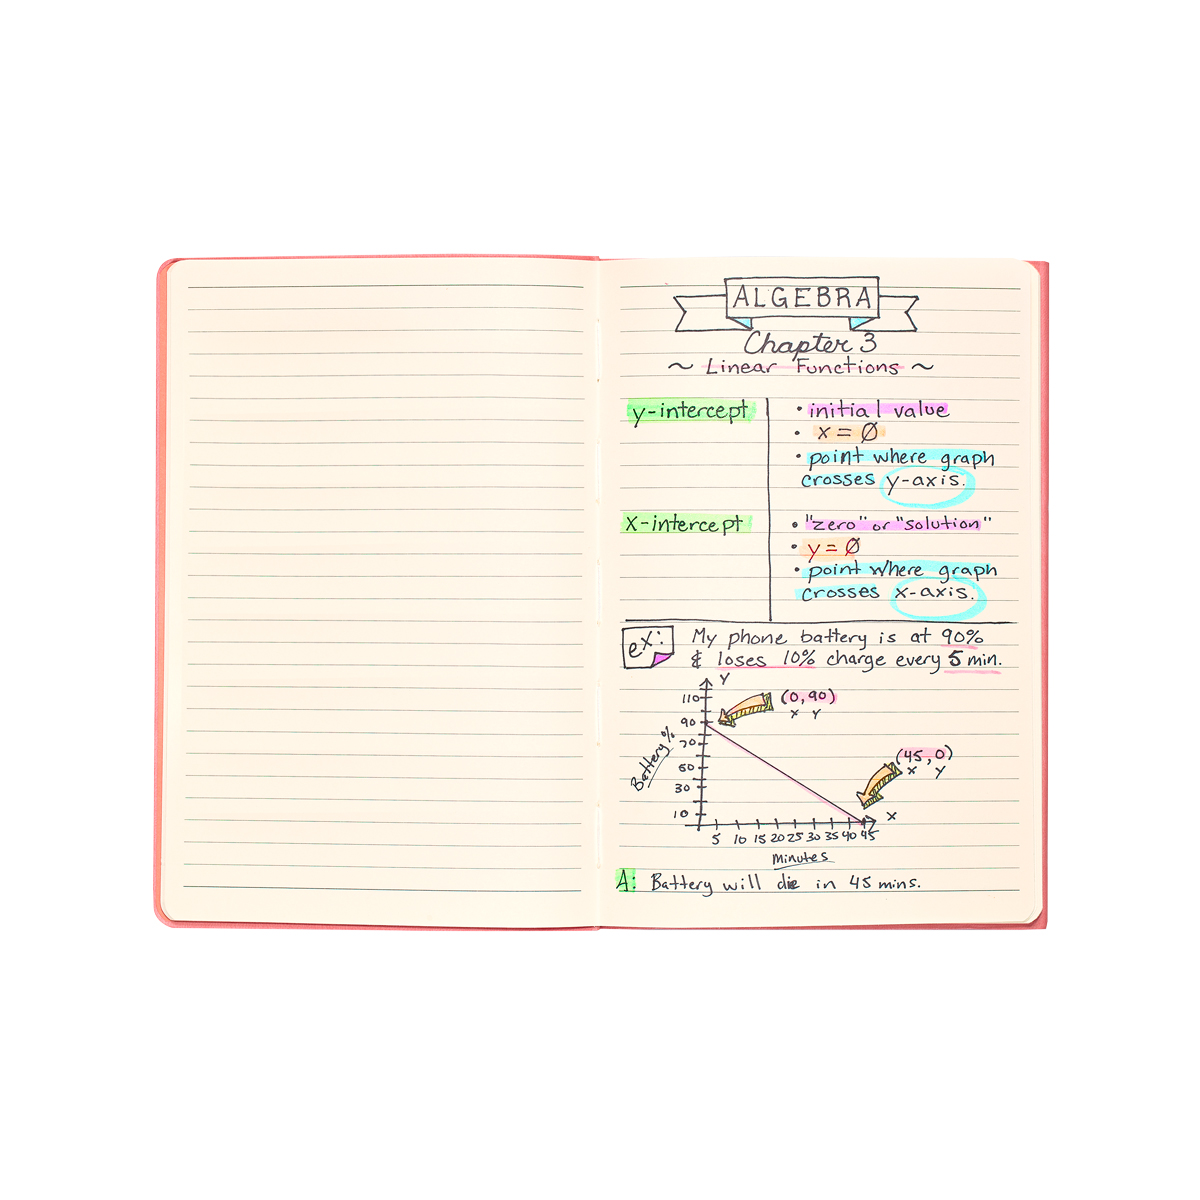 ALGEBRA
Chapter 3
~ Linear Functions ~
y-intercept
• initial value
• x = Ø
• point where graph
crosses y-axis.
x-intercept
• "zero" or "solution"
• y = Ø
• point where graph
crosses x-axis.
ex:
My phone battery is at 90%
& loses 10% charge every 5 min.
Y
110
90
70
50
30
10
Battery %
(0, 90)
X Y
(45, 0)
X Y
X
5 10 15 20 25 30 35 40 45
Minutes
A: Battery will die in 45 mins.